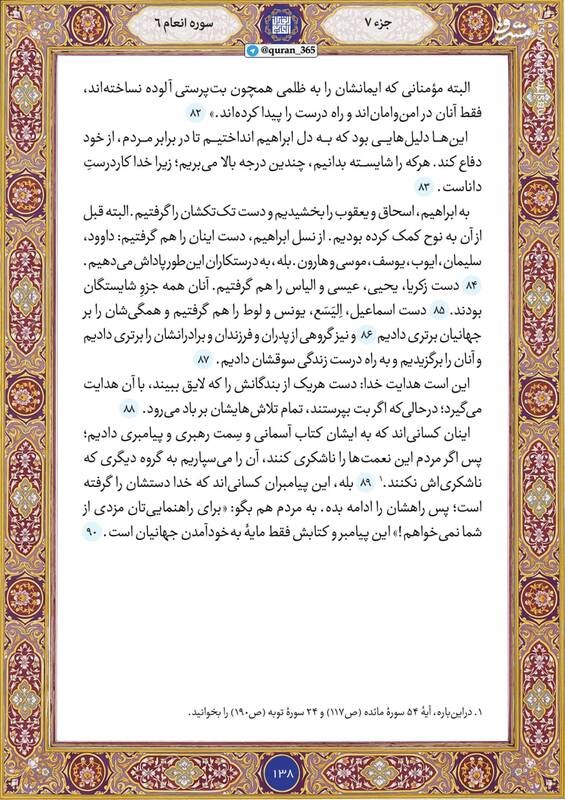 جزء ۷
سوره انعام ۶
@quran_365
البته مؤمنانی که ایمانشان را به ظلمی همچون بت‌پرستی آلوده نساخته‌اند،
فقط آنان در امن‌وامان‌اند و راه درست را پیدا کرده‌اند.» ۸۲
این‌ها دلیل‌هایی بود که به دل ابراهیم انداختیم تا در برابر مردم، از خود
دفاع کند. هرکه را شایسته بدانیم، چندین درجه بالا می‌بریم؛ زیرا خدا کاردرستِ
داناست. ۸۳
به ابراهیم، اسحاق و یعقوب را بخشیدیم و دست تک‌تکشان را گرفتیم. البته قبل
از آن به نوح کمک کرده بودیم. از نسل ابراهیم، دست اینان را هم گرفتیم: داوود،
سلیمان، ایوب، یوسف، موسی و هارون. بله، به درستکاران این‌طور پاداش می‌دهیم.
۸۴ دست زکریا، یحیی، عیسی و الیاس را هم گرفتیم. آنان همه جزوِ شایستگان
بودند. ۸۵ دست اسماعیل، اِلیَسَع، یونس و لوط را هم گرفتیم و همگی‌شان را بر
جهانیان برتری دادیم ۸۶ و نیز گروهی از پدران و فرزندان و برادرانشان را برتری دادیم
و آنان را برگزیدیم و به راه درست زندگی سوقشان دادیم. ۸۷
این است هدایت خدا: دست هریک از بندگانش را که لایق ببیند، با آن هدایت
می‌گیرد؛ درحالی‌که اگر بت بپرستند، تمام تلاش‌هایشان بر باد می‌رود. ۸۸
اینان کسانی‌اند که به ایشان کتاب آسمانی و سِمت رهبری و پیامبری دادیم؛
پس اگر مردم این نعمت‌ها را ناشکری کنند، آن را می‌سپاریم به گروه دیگری که
ناشکری‌اش نکنند.۱ ۸۹ بله، این پیامبران کسانی‌اند که خدا دستشان را گرفته
است؛ پس راهشان را ادامه بده. به مردم هم بگو: «برای راهنمایی‌تان مزدی از
شما نمی‌خواهم!» این پیامبر و کتابش فقط مایهٔ به‌خودآمدن جهانیان است. ۹۰
۱. دراین‌باره، آیهٔ ۵۴ سورهٔ مائده (ص۱۱۷) و ۲۴ سورهٔ توبه (ص۱۹۰) را بخوانید.
۱۳۸